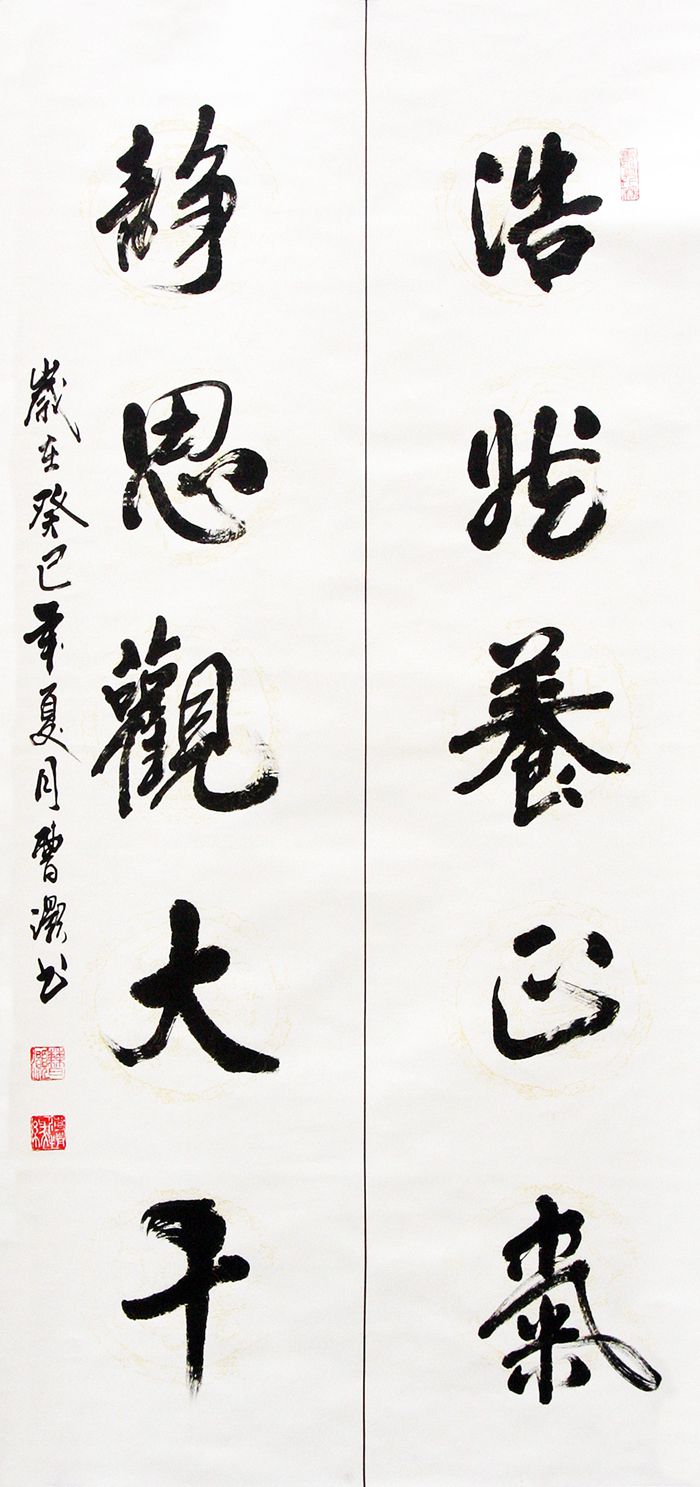 浩然養正氣
静思觀大千
歲在癸巳年夏月曹书